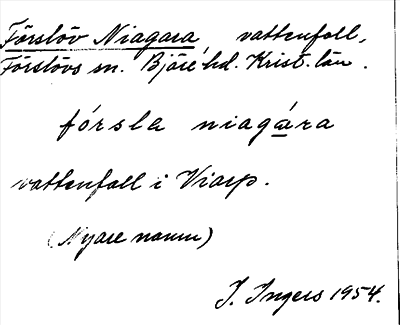 Förslöv Niagara vattenfall,
Förslövs sn. Bjäre hd. Krist. län.
fórsla niagára
vattenfall i Viarp.
(Nyare namn)
I. Ingers 1954.